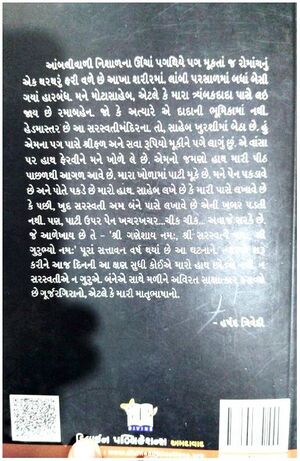 આંબલીવાળી નિશાળના ઊંચા પગથિયે પગ મૂકતાં જ રોમાંચનું
એક થરથરું ફરી વળે છે આખા શરીરમાં. લાંબી પરસાળમાં બધાં બેસી
ગયાં હારબંધ. મને મોટાસાહેબ, એટલે કે મારા ત્ર્યંબકદાદા પાસે લઇ
જાય છે રમાબહેન. જો કે અત્યારે એ દાદાની ભૂમિકામાં નથી.
હેડમાસ્તર છે આ સરસ્વતીમંદિરના તો, સાહેબ ખુરશીમાં બેઠા છે. હું
એમના પગ પાસે શ્રીફળ અને સવા રૂપિયો મૂકીને પગે લાગું છું. એ વાંસા
પર હાથ ફેરવીને મને ખોળે લે છે. એમનો જમણો હાથ મારી પીઠ
પાછળથી આગળ આવે છે. મારા ખોળામાં પાટી મૂકે છે. મને પેન પકડાવે
છે અને પોતે પકડે છે મારો હાથ. સાહેબ લખે છે કે મારી પાસે લખાવે છે
કે પછી, ખુદ સરસ્વતી અમ બંને પાસે લખાવે છે એની ખબર પડતી
નથી. પણ, પાટી ઉપર પેન ખચરખચર...ચીક ચીક... અવાજ સરકે છે.
જે આળખાય છે તે - 'શ્રી ગણેશાય નમઃ, શ્રી સરસ્વત્યૈ નમઃ, શ્રી
ગુરુભ્યો નમઃ' પૂરાં સત્તાવન વર્ષ થયાં છે આ ઘટનાને. શરૂ
કરીને આજ દિનની આ ક્ષણ સુધી કોઈએ મારો હાથ છોડ્યો નથી. ન
સરસ્વતીએ ન ગુરુએ. બંનેએ સાથે મળીને અવિરત સાક્ષાત્કાર કરાવ્યો
છે ગૂર્જરગિરાનો, એટલે કે મારી માતૃભાષાનો.
- હર્ષદ ત્રિવેદી
DIVINE
ડિવાઈન પબ્લિકેશન્સ અમદાવાદ